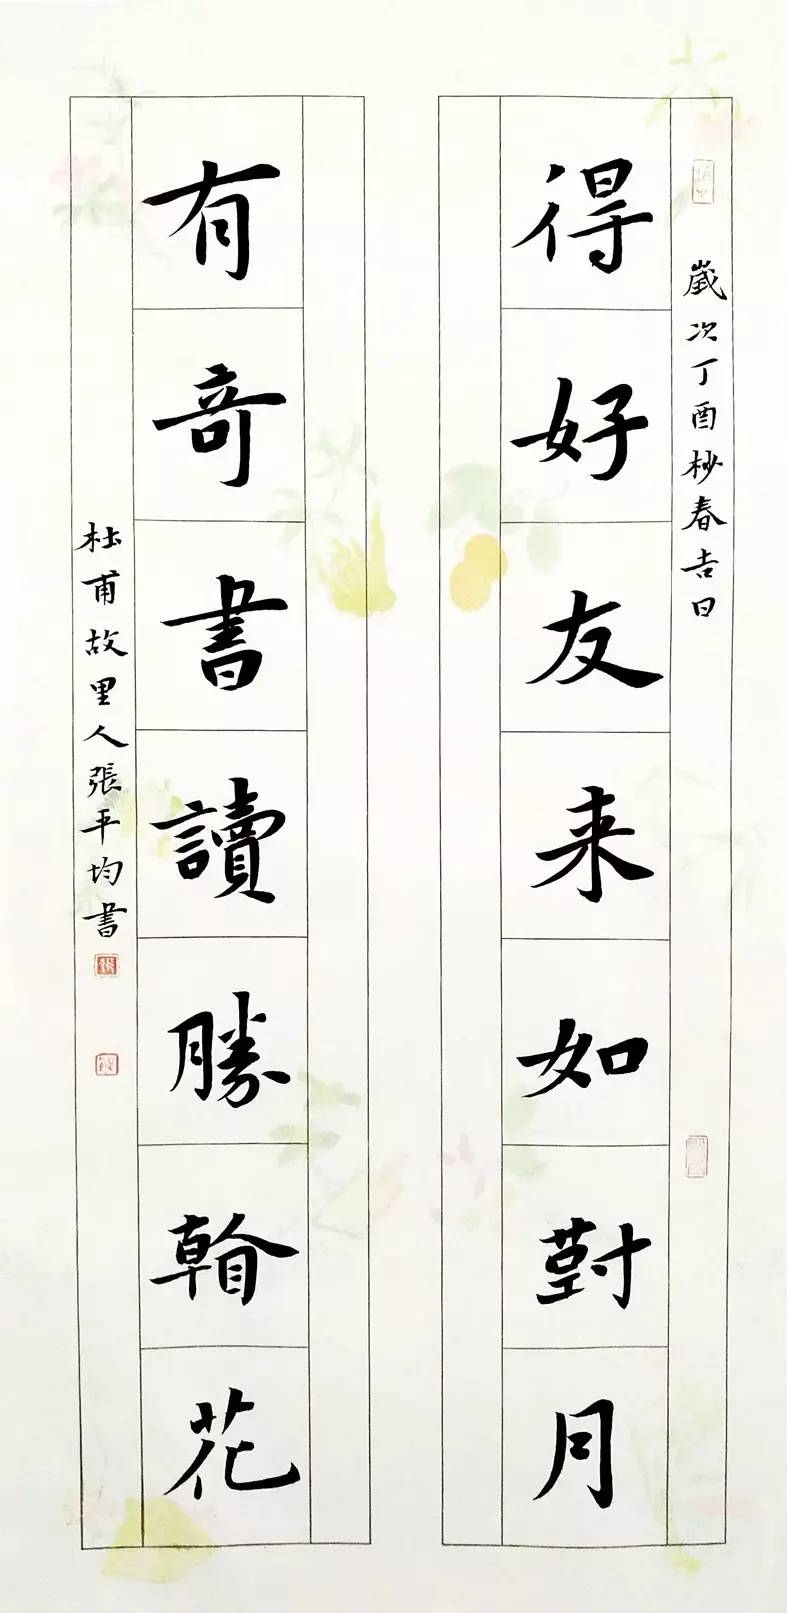 歲次丁酉杪春吉日
得好友来如對月
有奇書讀勝看花
杜甫故里人張平均書